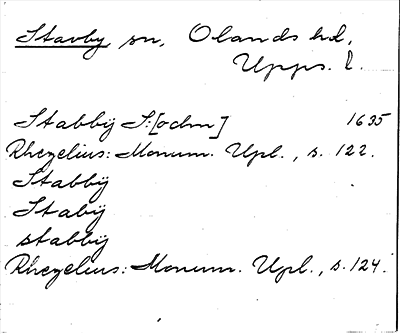 Stavby sn, Olands hd,
Upps. l.
Stabbÿ S:[ochn] 1635
Rhezelius: Monum. Upl., s. 122.
Stabbÿ
Stabÿ
stabbÿ
Rhezelius: Monum. Upl., s. 124.